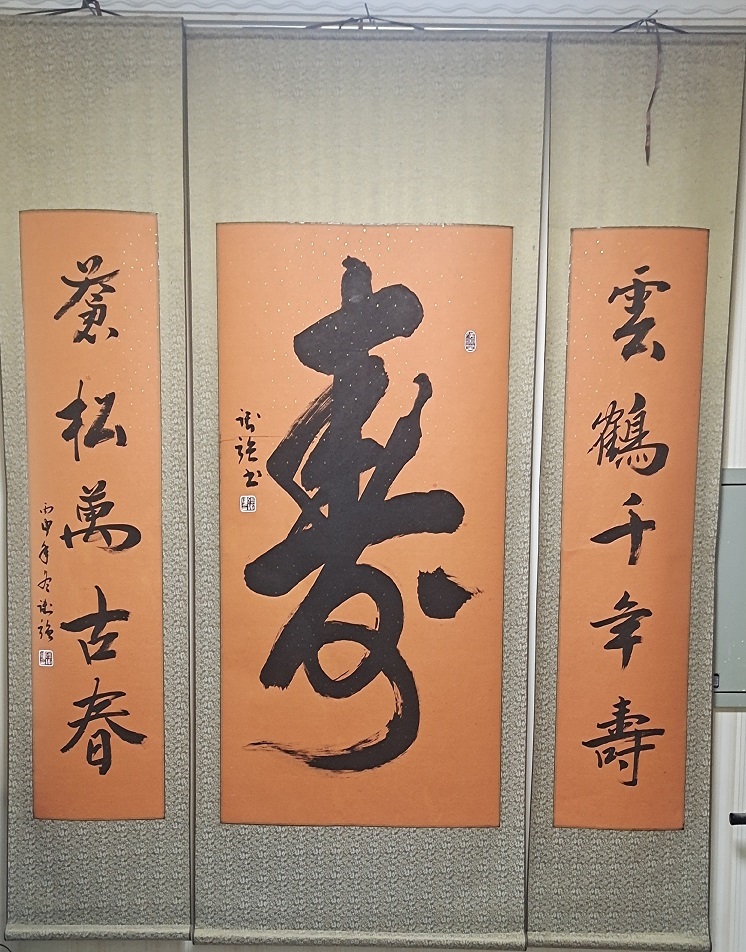 雲鶴千年壽
壽
書
蒼松萬古春
丙申年冬